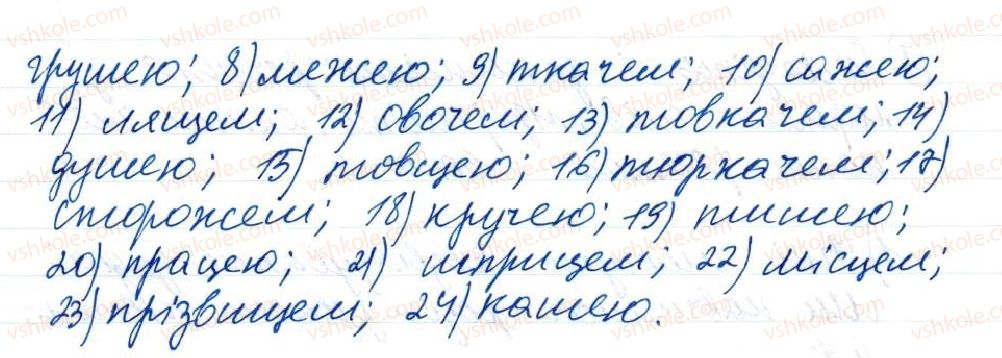 грушею; 8) межею; 9) ткачем; 10) сажею;
11) лящем; 12) овочем; 13) товкачем; 14)
душею; 15) товщею; 16) тюркачем; 17)
сторожем; 18) кручею; 19) тишею;
20) працею; 21) шприцем; 22) місцем;
23) прізвищем; 24) кашею.